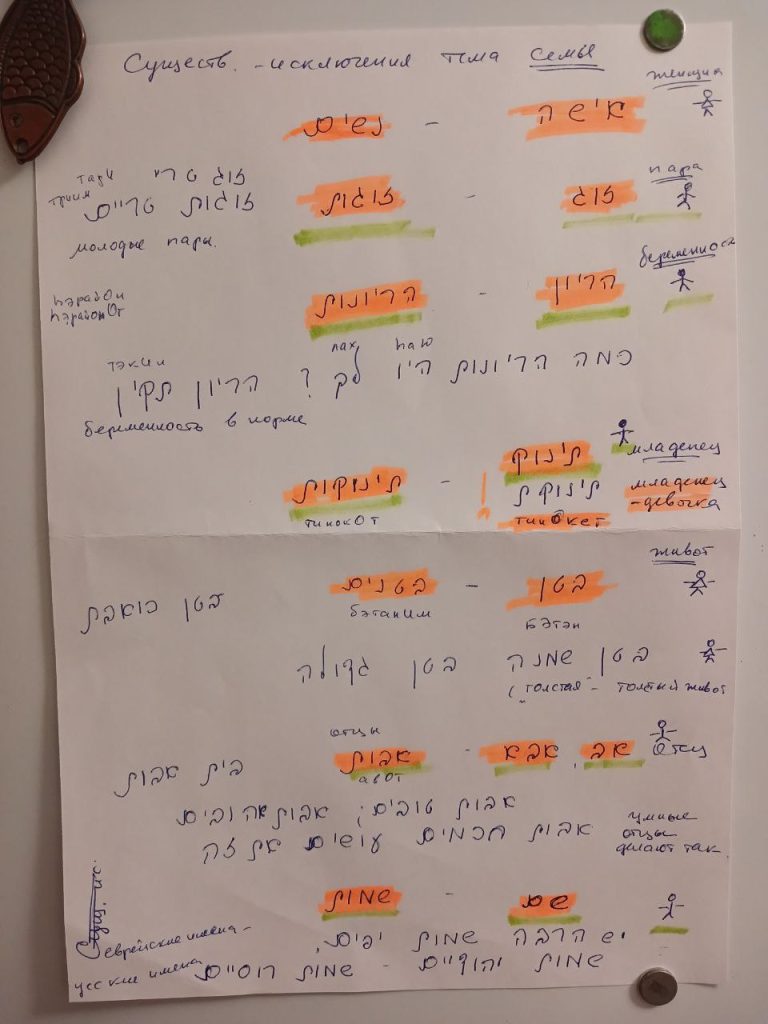 Существ. - исключения тема семья
женщина
אישה - נשים
пара
זוג - זוגות
זוג טרי
тари
זוגות טריים
трийм
молодые пары.
беременность
הריון - הריונות
hэрайон
hэрайонОт
כמה הריונות היו לך ? הריון תקין
hаю
лах
тэкИн
беременность в норме
תינוק - תינוקות
младенец
! תינוקת
младенец
-девочка
тинОкет
тинокОт
живот
בטן - בטנים
בטן כואבת
бэтанИм
бЭтэн
בטן שמנה בטן גדולה
("толстая" - толстый живот
отцы
отец
אב, אבא - אבות
авОт
בית אבות
אבות טובים; אבות אהובים
אבות חכמים עושים את זה
умные
отцы
делают так
שם - שמות
יש הרבה שמות יפים.
שמות יהודיים - שמות רוסיים
еврейские имена -
усские имена